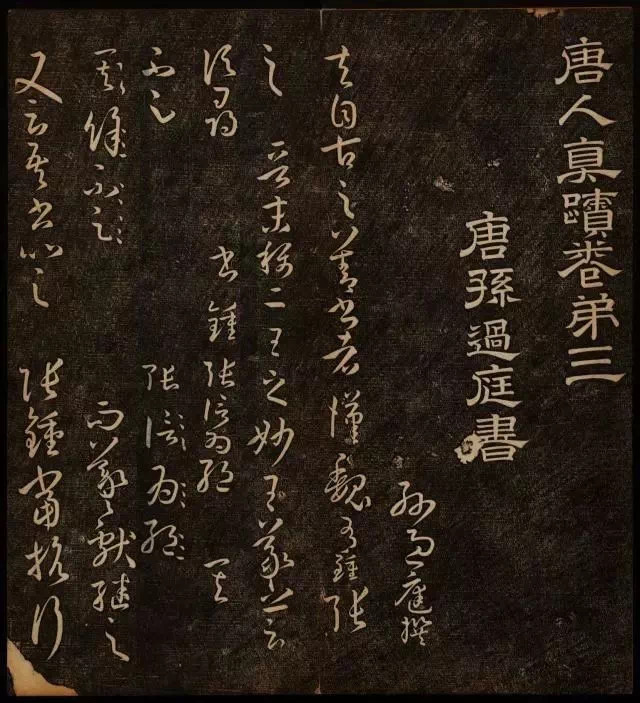 唐人真蹟卷弟三
唐孫過庭書
孫過庭撰
夫自古之善書者漢魏有鍾張
之 晉末稱二王之妙王羲之云
頃尋 書 鍾張信為絕 其
張信為絕
餘不 而羲獻繼之
又云吾書比之 張鍾當抗行